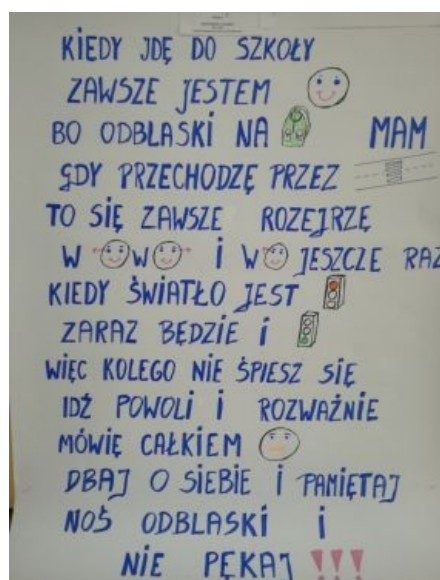 KIEDY JDĘ DO SZKOŁY
ZAWSZE JESTEM
BO ODBLASKI NA MAM
GDY PRZECHODZĘ PRZEZ
TO SIĘ ZAWSZE ROZEJRZĘ
W W I W JESZCZE RAZ
KIEDY ŚWIATŁO JEST
ZARAZ BĘDZIE I
WIĘC KOLEGO NIE ŚPIESZ SIĘ
IDŹ POWOLI I ROZWAŻNIE
MÓWIĘ CAŁKIEM
DBAJ O SIEBIE I PAMIĘTAJ
NOŚ ODBLASKI I
NIE PĘKAJ !!!